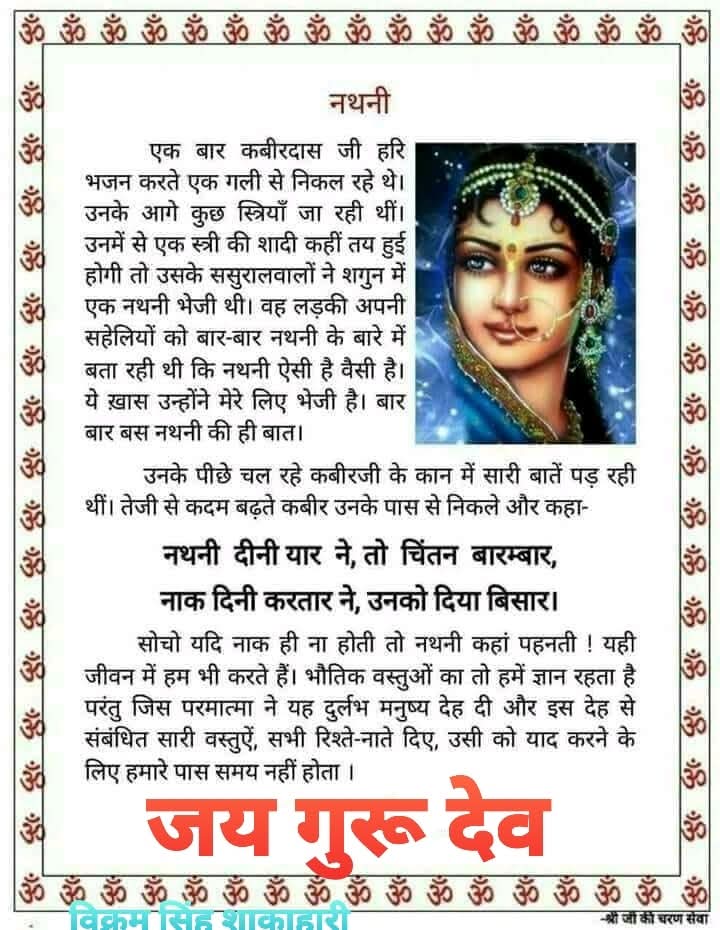 ॐ ॐ ॐ ॐ ॐ ॐ ॐ ॐ ॐ ॐ ॐ ॐ ॐ ॐ ॐ ॐ ॐ
नथनी
एक बार कबीरदास जी हरि
भजन करते एक गली से निकल रहे थे।
उनके आगे कुछ स्त्रियाँ जा रही थीं।
उनमें से एक स्त्री की शादी कहीं तय हुई
होगी तो उसके ससुरालवालों ने शगुन में
एक नथनी भेजी थी। वह लड़की अपनी
सहेलियों को बार-बार नथनी के बारे में
बता रही थी कि नथनी ऐसी है वैसी है।
ये ख़ास उन्होंने मेरे लिए भेजी है। बार
बार बस नथनी की ही बात।
उनके पीछे चल रहे कबीरजी के कान में सारी बातें पड़ रही
थीं। तेजी से कदम बढ़ते कबीर उनके पास से निकले और कहा-
नथनी दीनी यार ने, तो चिंतन बारम्बार,
नाक दिनी करतार ने, उनको दिया बिसार।
सोचो यदि नाक ही ना होती तो नथनी कहां पहनती ! यही
जीवन में हम भी करते हैं। भौतिक वस्तुओं का तो हमें ज्ञान रहता है
परंतु जिस परमात्मा ने यह दुर्लभ मनुष्य देह दी और इस देह से
संबंधित सारी वस्तुऐं, सभी रिश्ते-नाते दिए, उसी को याद करने के
लिए हमारे पास समय नहीं होता ।
जय गुरू देव
ॐ ॐ ॐ ॐ ॐ ॐ ॐ ॐ ॐ ॐ ॐ ॐ ॐ ॐ ॐ ॐ ॐ
विक्रम सिंह शाकाहारी
-श्री जी की चरण सेवा